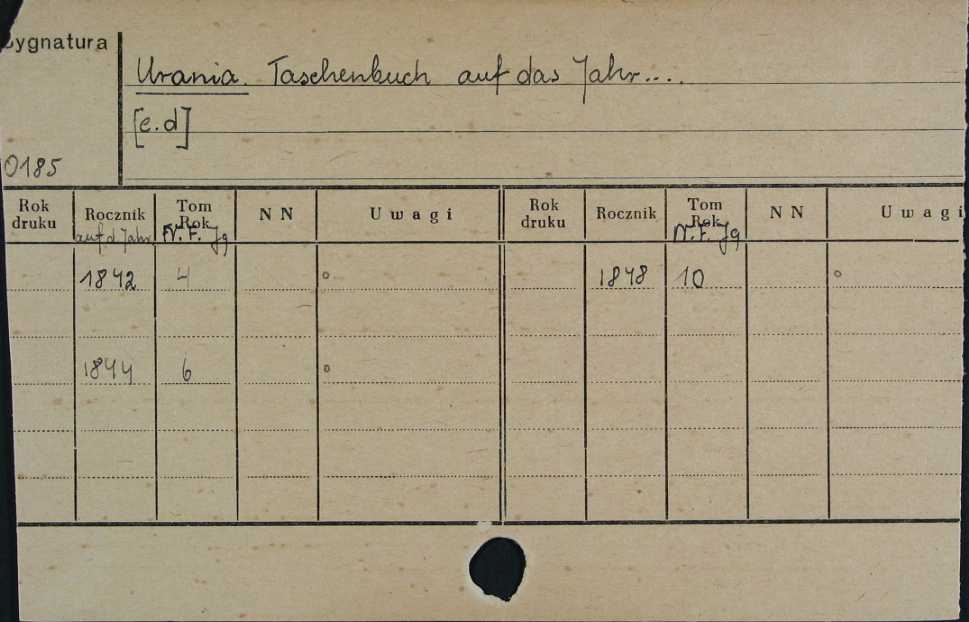 Sygnatura
Urania. Taschenbuch auf das Jahr....
[e.d]
0185
Rok druku Rocznik Tom Rok NN Uwagi Rok druku Rocznik Tom Rok NN Uwagi
auf d Jahr N.F. Jg N.F. Jg
1842 4 o 1848 10 o
1844 6 o